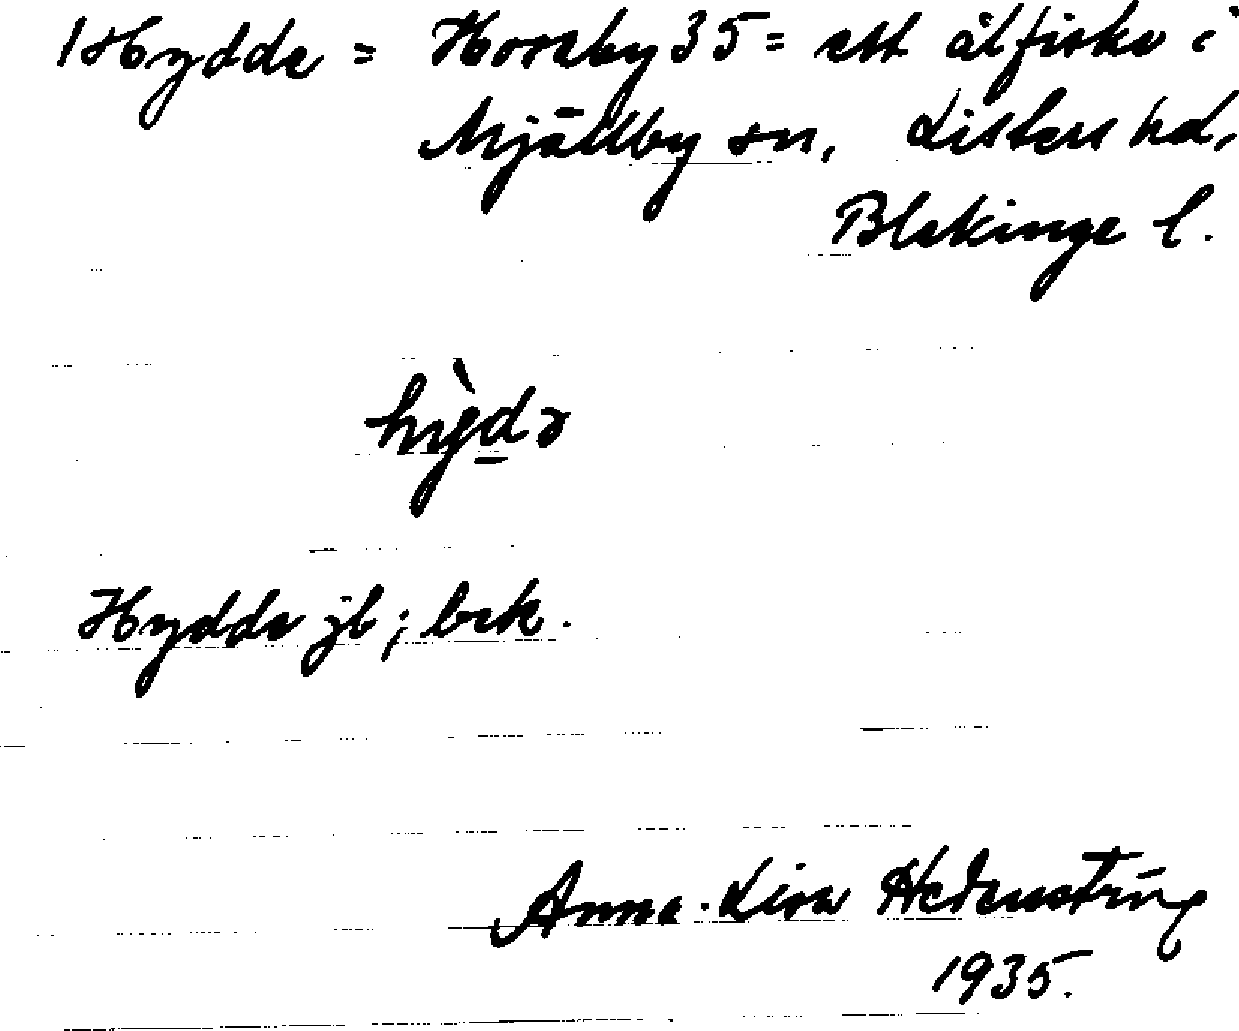 1 Hydda = Horsaby 35 = ett ålfiske i
Mjällby sn, Listers hd,
Blekinge l.
hỳdə
Hydda jb; bek.
Anna-Lisa Hedenström
1935.